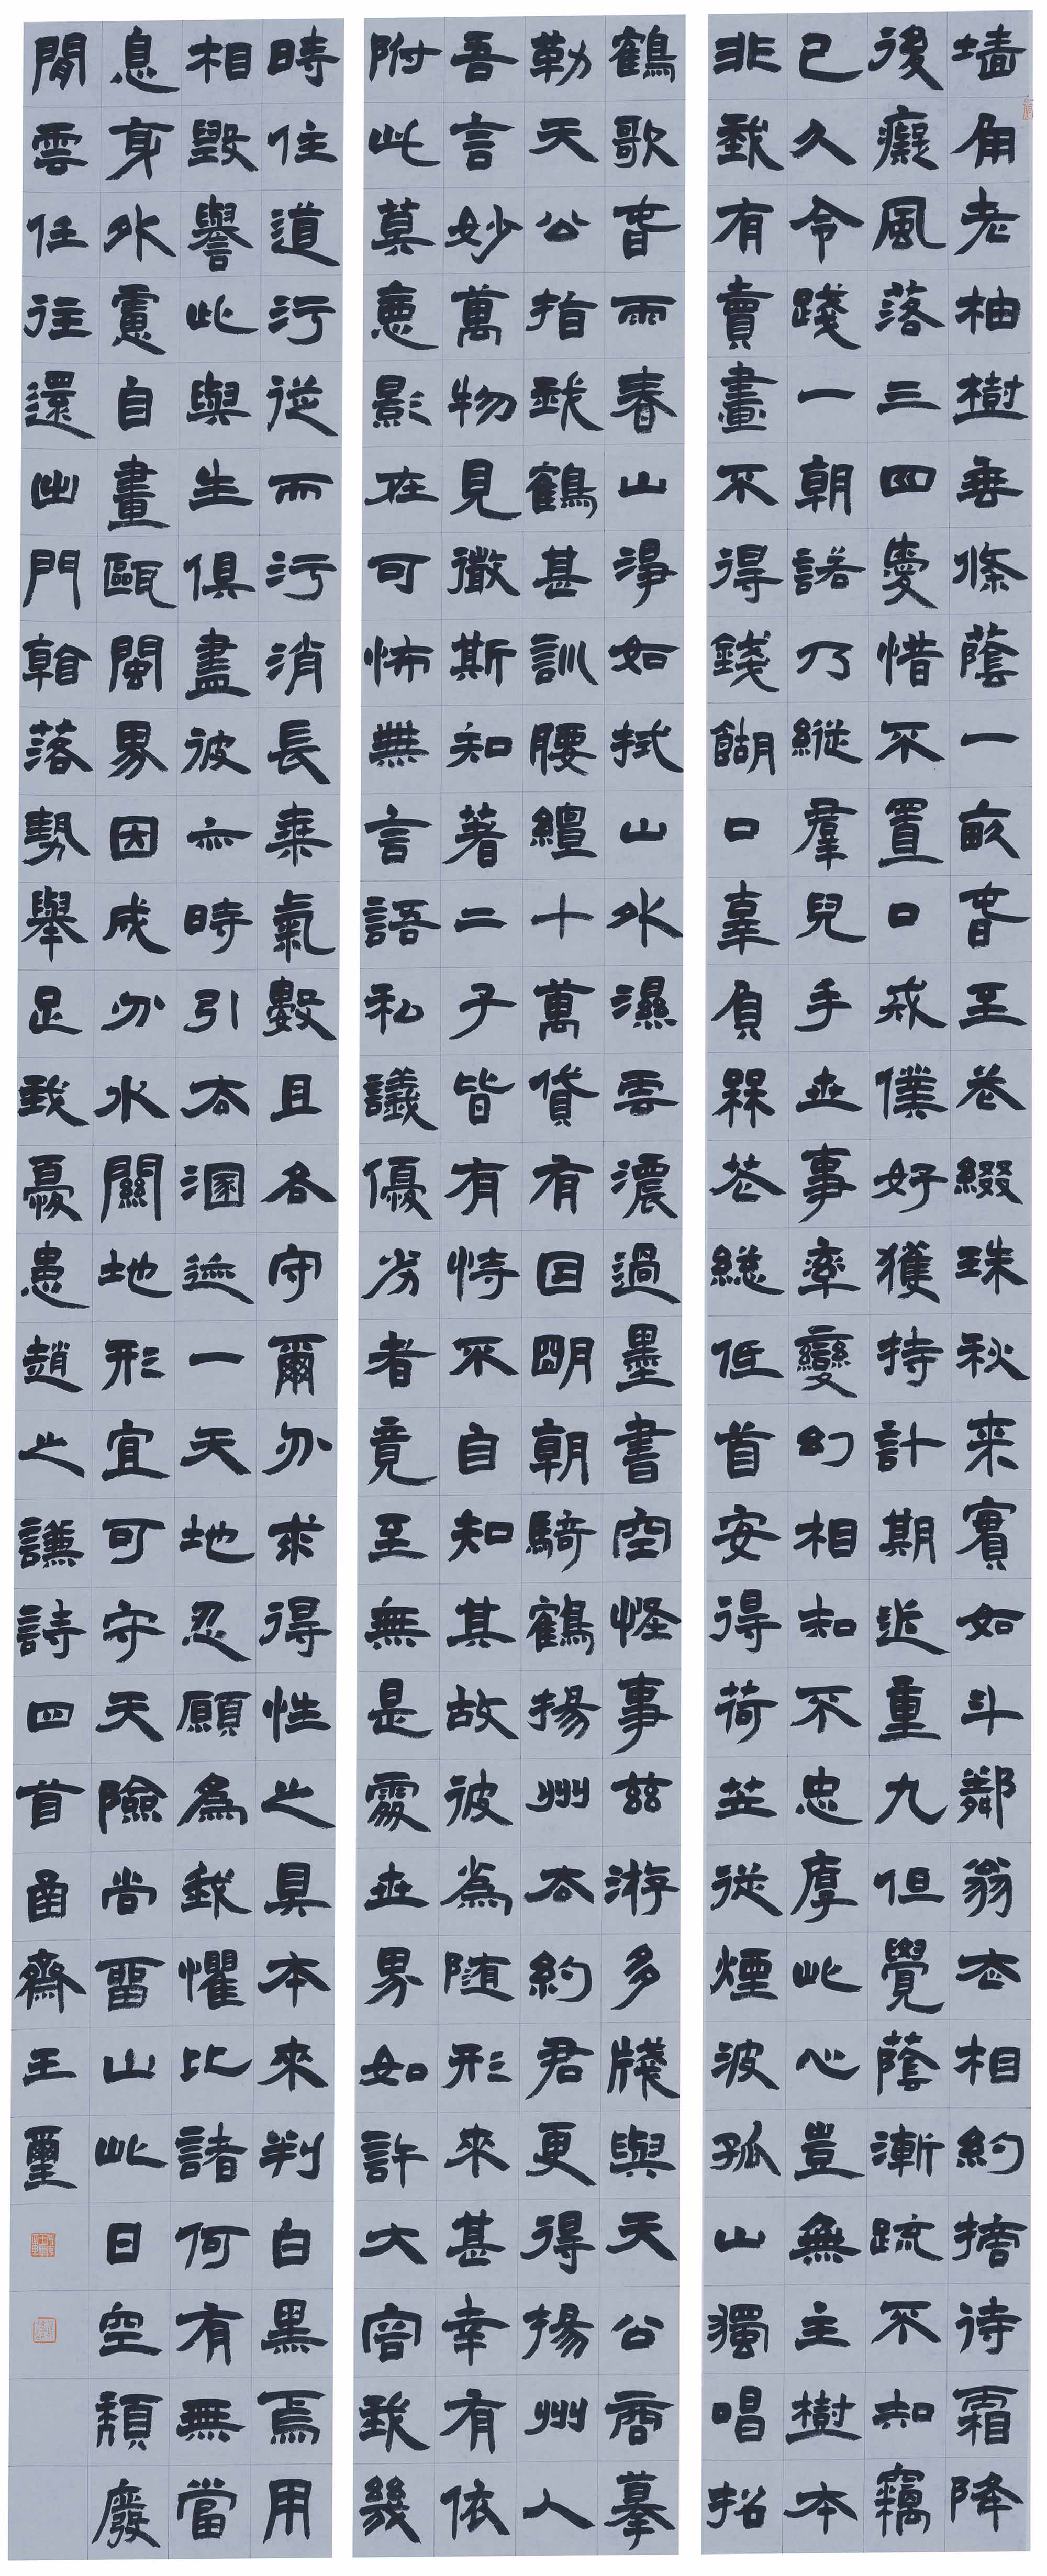 墙角老柚樹垂條蔭一畝春至卷綴珠秋来實如斗鄰翁去相約摘待霜降
後癡風落三四愛惜不置口戒僕好獲持計期近重九但覺蔭漸疏不知竊
已久令踐一朝諾乃縱群兒手世事率變幻相知不忠厚此心豈無主樹本
非我有賣畫不得錢餬口辜負罪花總低首安得荷芰從煙波孤山獨唱招
鶴歌春雨春山淨如拭山水濕雲濃過墨書空怪事茲游多牋與天公商摹
勒天公指我鶴甚訓腰纏十萬貸有因明朝騎鶴揚州去約君更得揚州人
吾言妙萬物見徵斯知著二子皆有恃不自知其故彼為随形來甚幸有依
附此莫憲影在可怖無言語私議優劣者竟至無是處世界如許大容我幾
時住道行從而污消長乘氣數且各守爾分求得性之具本來判白黑焉用
相毀譽此與生俱盡彼亦時引去溷迹一天地忍願為我懼比諸何有無當
息身外慮自畫甌閩界因成分水關地形宜可守天險尚留山此日空頹廢
閒雲任往還出門翰落勢舉足我憂患趙之謙詩四首 齋王